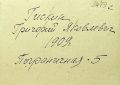 Григорий Яковлевич
1909.
Пограничная - 5